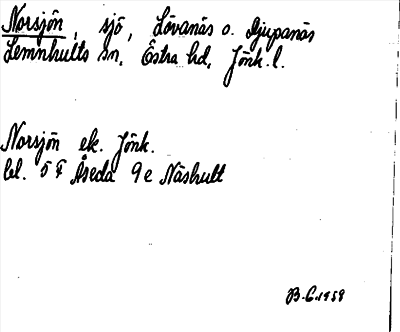 Norsjön, sjö, Lövanäs o. Djupanäs
Lemnhults sn, Östra hd, Jönk. l.
Norsjön ek. Jönk.
bl. 5 F Åseda 9e Näshult
B. G. 1959